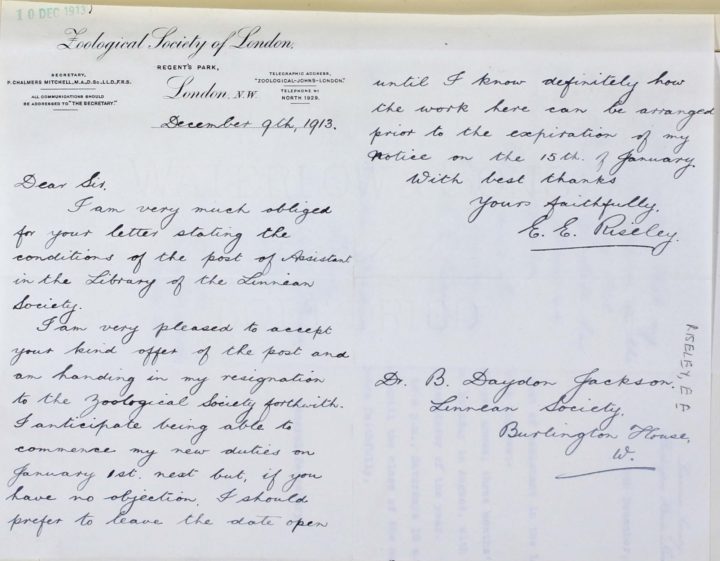 10 DEC 1913
Zoological Society of London.
REGENT'S PARK,
London, N.W.
SECRETARY,
P. CHALMERS MITCHELL, M.A., D.Sc., LL.D., F.R.S.
ALL COMMUNICATIONS SHOULD
BE ADDRESSED TO "THE SECRETARY."
TELEGRAPHIC ADDRESS,
"ZOOLOGICAL-JOHNS-LONDON."
TELEPHONE No
NORTH 1929.
December 9th, 1913.
Dear Sir,
I am very much obliged
for your letter stating the
conditions of the post of Assistant
in the Library of the Linnean
Society.
I am very pleased to accept
your kind offer of the post and
am handing in my resignation
to the Zoological Society forthwith.
I anticipate being able to
commence my new duties on
January 1st. next but, if you
have no objection, I should
prefer to leave the date open
until I know definitely how
the work here can be arranged
prior to the expiration of my
notice on the 15th. of January.
With best thanks
Yours faithfully,
E. E. Riseley.
Dr. B. Daydon Jackson.
Linnean Society,
Burlington House,
W.
RISELEY, E E